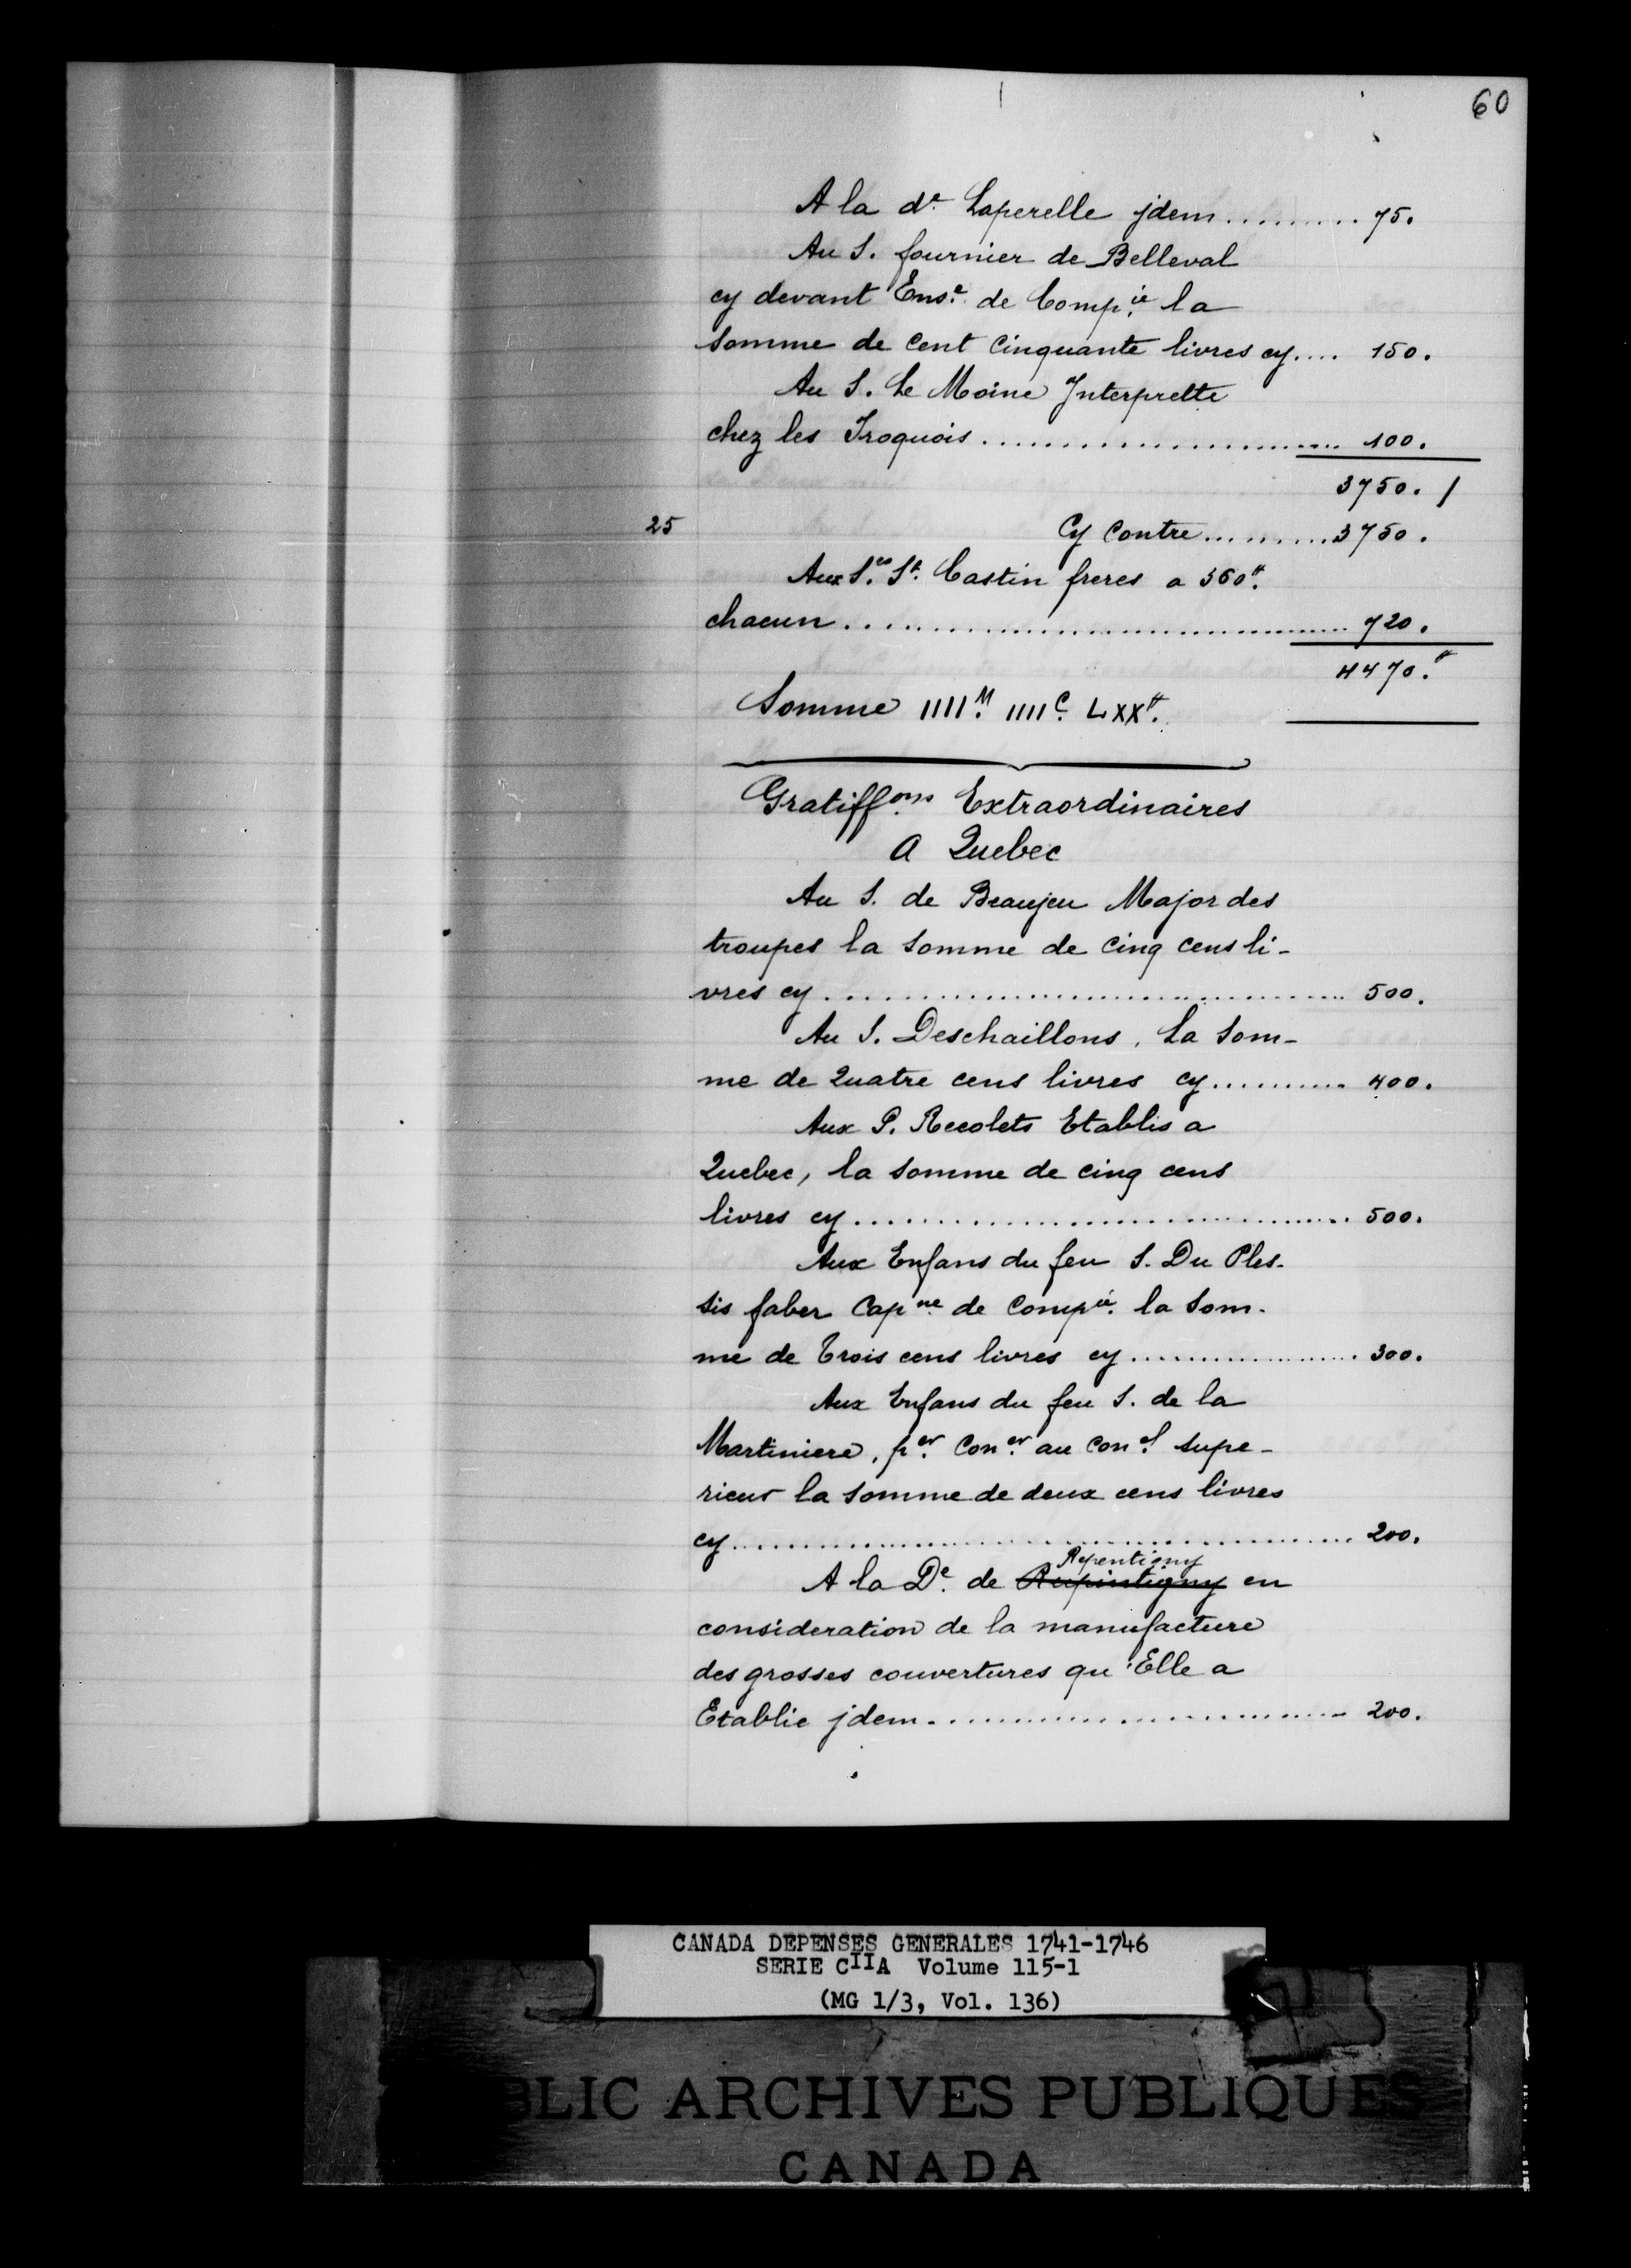 60
A la de. Laperelle jdem.......... 75.
Au S. fournier de Belleval
cy devant Ense. de Compie. la
somme de cent cinquante livres cy.... 150.
Au S. Le Moine Interprette
chez les Iroquois........................ 100.
3750. /
25 Cy contre..........3750.
Aux Srs. St. Castin freres a 360#.
chacun.................................... 720.
4470.#
Somme IIIIM. IIIIC. LXX#.
Gratiffons. Extraordinaires
A Quebec
Au S. de Beaujeu Major des
troupes la somme de cinq cens li-
vres cy.................................... 500.
Au S. Deschaillons, la som-
me de Quatre cens livres cy.......... 400.
Aux P. Recolets Etablis a
Quebec, la somme de cinq cens
livres cy.................................. 500.
Aux Enfans du feu S. Du Ples-
sis faber Capne. de compie. la som-
me de trois cens livres cy................ 300.
Aux Enfans du feu S. de la
Martiniere, per. Coner. au conel. supe-
rieur la somme de deux cens livres
cy........................................ 200.
Repentigny
A la De. de Rupintigny en
consideration de la manufacture
des grosses couvertures qu'Elle a
Etablie jdem............................ 200.
CANADA DEPENSES GENERALES 1741-1746
SERIE CIIA Volume 115-1
(MG 1/3, Vol. 136)
BLIC ARCHIVES PUBLIQUES
CANADA